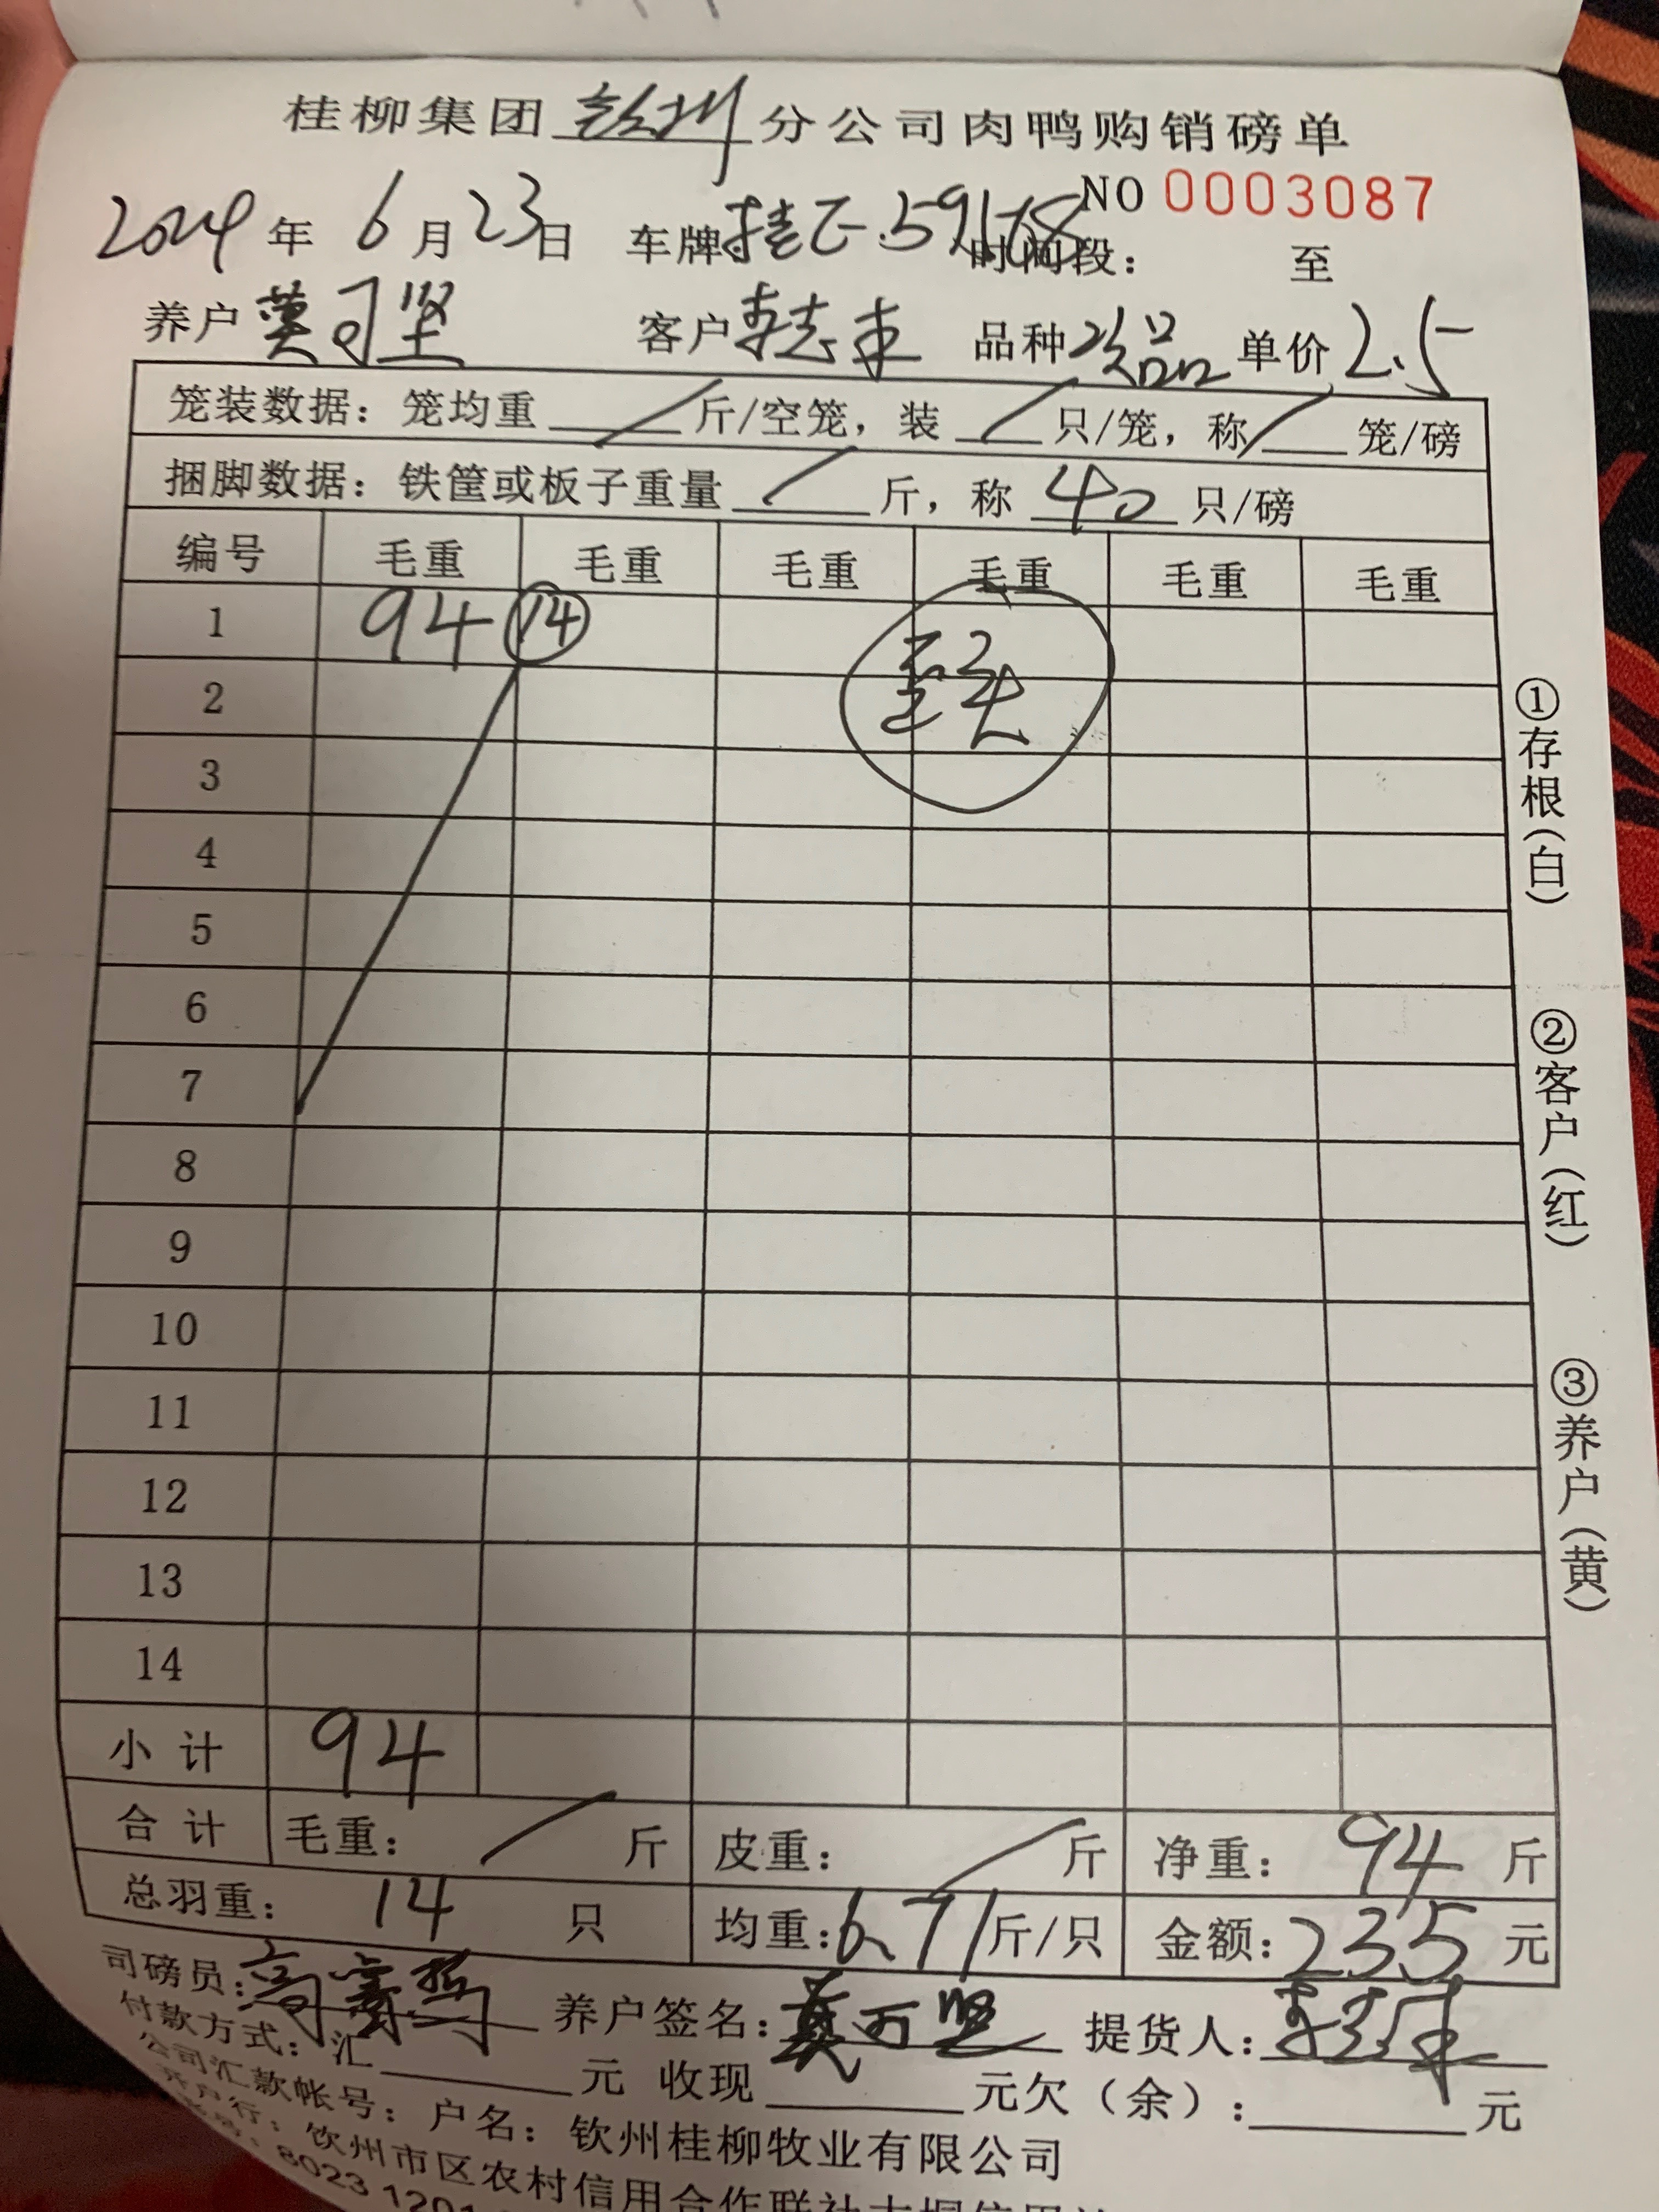 桂柳集团钦州分公司肉鸭购销磅单
NO 0003087
2024年6月23日 车牌 时间段： 至
养户莫可坚 客户 品种次品 单价2.5
笼装数据：笼均重 / 斤/空笼，装 / 只/笼，称 / 笼/磅
捆脚数据：铁筐或板子重量 / 斤，称 40 只/磅
编号 毛重 毛重 毛重 毛重 毛重 毛重
1 94 14
2
3
4
5
6
7
8
9
10
11
12
13
14
小计 94
合计 毛重： / 斤 皮重： / 斤 净重：94斤
总羽重： 14 只 均重：6.71斤/只 金额：235元
司磅员： 养户签名：莫可坚 提货人：
付款方式：汇 元 收现 元欠（余）： 元
公司汇款帐号：户名：钦州桂柳牧业有限公司
开户行：钦州市区农村信用合作联社
8023 1201
①存根（白）
②客户（红）
③养户（黄）